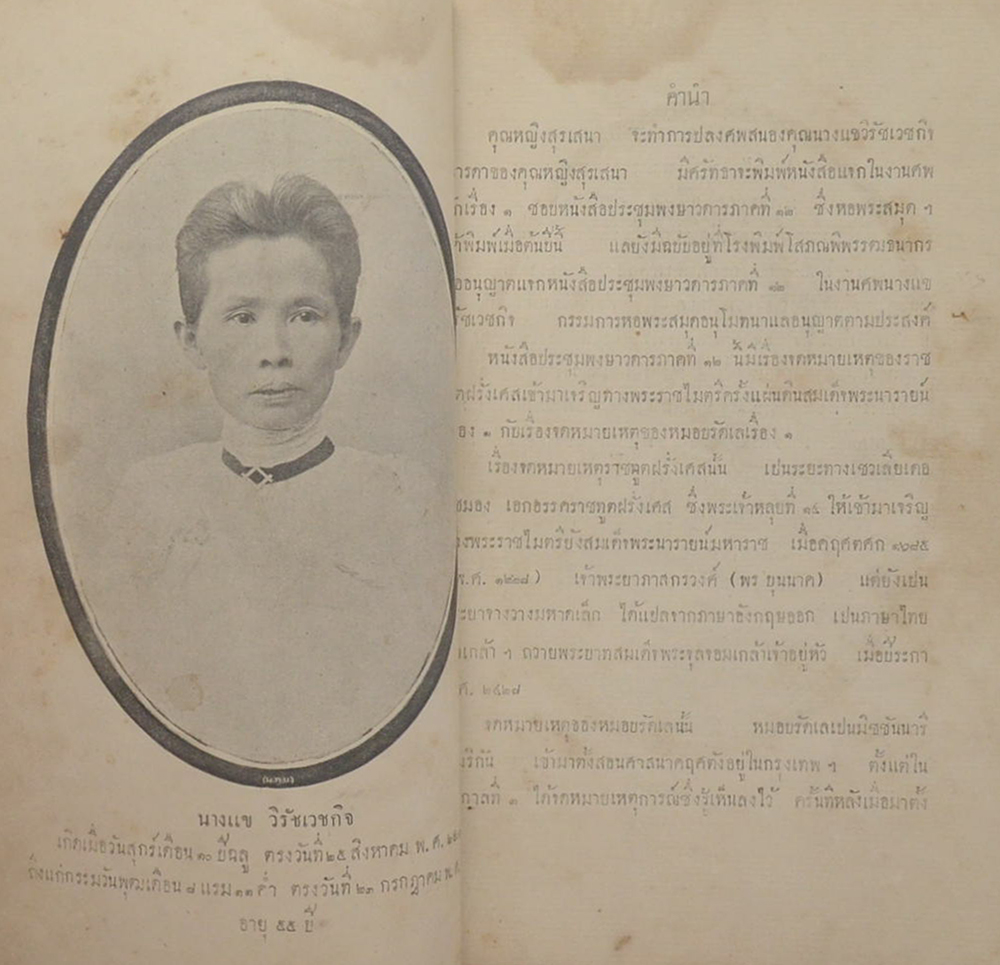 นางแข วิรัชเวชกิจ
เกิดเมื่อวันสุกร์เดือน ๑๐ ปีฉลู ตรงวันที่ ๒๕ สิงหาคม พ. ศ.
ถึงแก่กรรมวันพุฒเดือน ๘ แรม ๑๑ ค่ำ ตรงวันที่ ๒๓ กรกฎาคม พ. ศ.
อายุ ๕๕ ปี
คำนำ
คุณหญิงสุรเสนา จะทำการปลงศพสนองคุณนางแขวิรัชเวชกิจ
ารดาของคุณหญิงสุรเสนา มีศรัทธาจะพิมพ์หนังสือแจกในงานศพ
เรื่อง ๑ ชอบหนังสือประชุมพงษาวดารภาคที่ ๑๒ ซึ่งหอพระสมุด ฯ
ด้พิมพ์เมื่อต้นปีนี้ แลยังมีฉบับอยู่ที่โรงพิมพ์โสภณพิพรรฒธนากร
ออนุญาตแจกหนังสือประชุมพงษาวดารภาคที่ ๑๒ ในงานศพนางแข
รัชเวชกิจ กรรมการหอพระสมุดอนุโมทนาแลอนุญาตตามประสงค์
หนังสือประชุมพงษาวดารภาคที่ ๑๒ นี้มีเรื่องจดหมายเหตุของราช
ตฝรั่งเศสเข้ามาเจริญทางพระราชไมตรีครั้งแผ่นดินสมเด็จพระนารายน์
อง ๑ กับเรื่องจดหมายเหตุของหมอบรัดเลเรื่อง ๑
เรื่องจดหมายเหตุราชทูตฝรั่งเศสนั้น เปนระยะทางเชวเลียเดอ
ชมอง เอกอรรคราชทูตฝรั่งเศส ซึ่งพระเจ้าหลุยที่ ๑๔ ให้เข้ามาเจริญ
งพระราชไมตรียังสมเด็จพระนารายน์มหาราช เมื่อคฤศตศก ๑๖๘๕
พ.ศ. ๑๒๒๘ ) เจ้าพระยาภาสกรวงศ์ (พร บุนนาค) แต่ยังเปน
ะยาจางวางมหาดเล็ก ได้แปลจากภาษาอังกฤษออก เปนภาษาไทย
เกล้า ฯ ถวายพระบาทสมเด็จพระจุลจอมเกล้าเจ้าอยู่หัว เมื่อปีระกา
ศ. ๒๔๒๘
จดหมายเหตุของหมอบรัดเลนั้น หมอบรัดเลเปนมิชชันนารี
มริกัน เข้ามาตั้งสอนศาสนาคฤศตังอยู่ในกรุงเทพ ฯ ตั้งแต่ใน
กาลที่ ๓ ได้จดหมายเหตุการณ์ซึ่งรู้เห็นลงไว้ ครั้นทีหลังเมื่อมาตั้ง